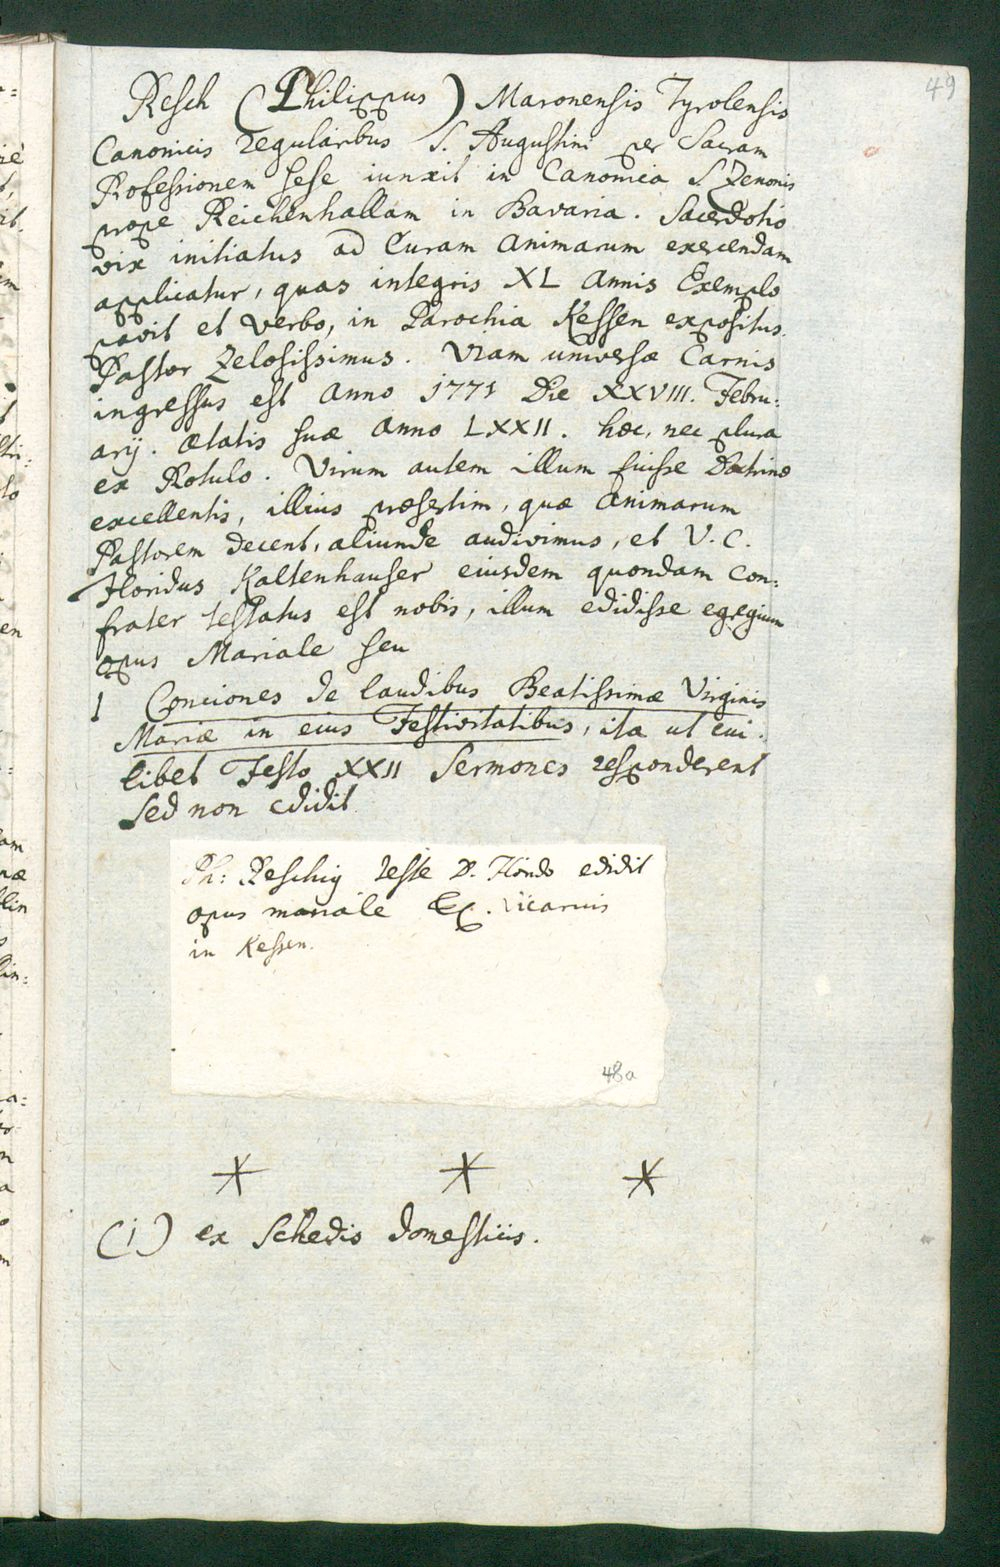 49
Resch (Philippus) Maronensis Tyrolensis
Canonicis regularibus S. Augustini per Sacram
Professionem sese iunxit in Canonica S. Zenonis
prope Reichenhallam in Bavaria. Sacerdotio
vix initiatus ad Curam animarum exercendam
applicatur, quas integris XL annis Exemplo
pavit et verbo, in Parochia Kessen expositus.
Pastor Zelosissimus. Viam universæ Carnis
ingressus est anno 1771 Die XXVIII. Febru:
arij. ætatis suæ anno LXXII. hæc, nec plura
ex Rotulo. Virum autem illum fuisse Doctrinæ
excellentis, illius præsertim, quæ animarum
Pastorem decent, aliunde audivimus, et V. C.
Floridus Kaltenhauser eiusdem quondam Con:
frater testatus est nobis, illum edidisse egregium
opus Mariale seu
1 Conciones de laudibus Beatissimæ Virginis
Mariæ in eius Festivitatibus, ita ut cui:
libet Festo XXII Sermones responderent
Sed non edidit
Ph: Reschig teste P. Florido edidit
opus mariale Vicarius
in Kessen.
48a
(i) ex Schedis domesticis.